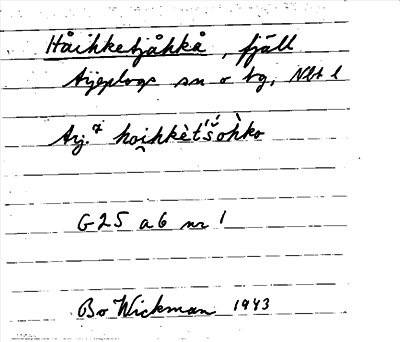 Håihketjåhkå, fjäll
Arjeplogs sn o tg, Nbt l
Arj. hoi̯hkèt'š́òhko
G25 a 6 nr 1
Bo Wickman 1943